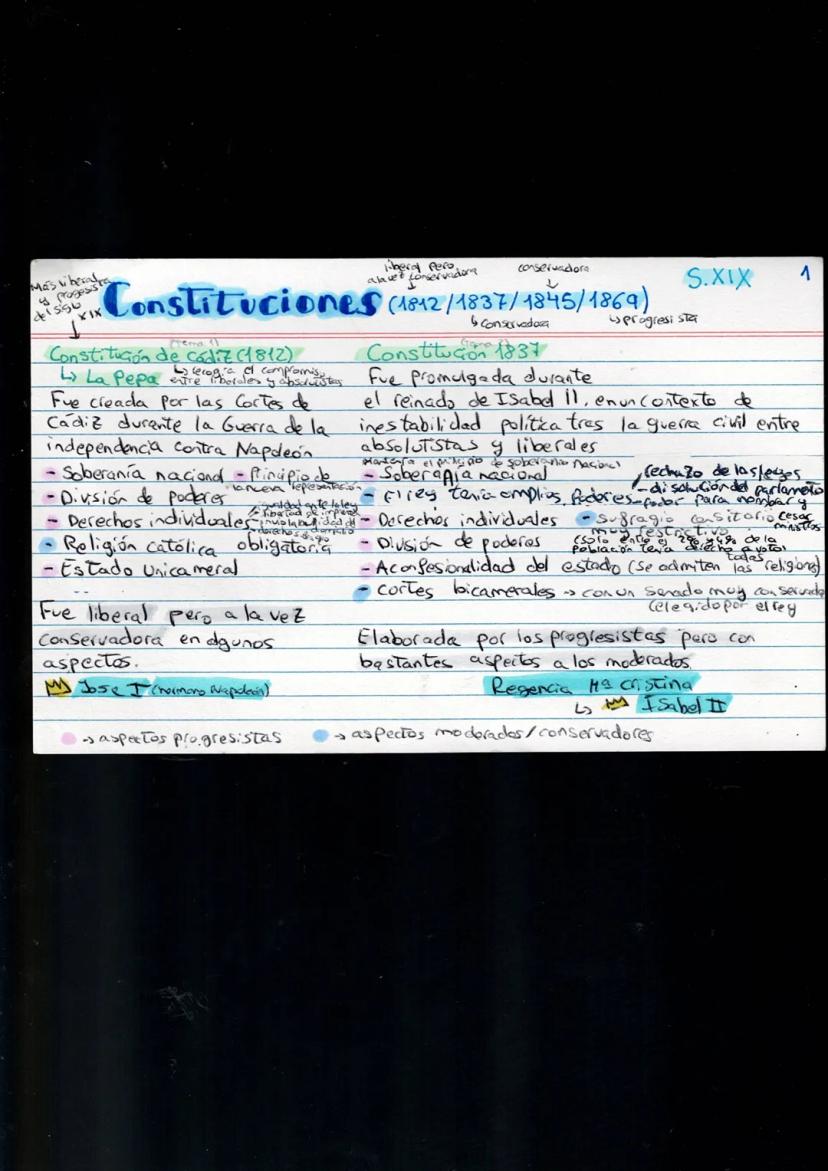 liberal pero
a la vez conservadora
conservadora
S.XIX
1
Más liberal
y progresis
del siglo
XIX
Constituciones (1812/1837/1845/1869)
↳ conservadora
↳ progresista
(tema 1)
Constitución de cádiz (1812)
↳ La Pepa
↳ recogía el compromiso
entre liberales y absolutistas
Fue creada por las Cortes de
Cádiz durante la Guerra de la
independencia contra Napoleón
- Soberanía nacional - Principio de
la nueva representación
- División de poderes
- Derechos individuales
igualdad ante la ley
libertad de imprenta
inviolabilidad de
- Religión católica obligatoria
- Estado Unicameral
Fue liberal pero a la vez
conservadora en algunos
aspectos.
Jose I (hermano Napoleón)
Constitución 1837
Fue promulgada durante
el reinado de Isabel II, en un contexto de
inestabilidad política tras la guerra civil entre
absolutistas y liberales
mantenía el principio de soberanía nacional
- Soberanía nacional
- El rey tenía amplios poderes
rechazo de las leyes
- disolución del parlamento
- poder para nombrar y
cesar
ministros
- Derechos individuales
- sufragio censitario
muy restrictivo
(solo entre el 2% y 4% de la
población tenía derecho a votar
- División de poderes
todas
- Aconfesionalidad del estado (se admiten las religiones)
- Cortes bicamerales → con un senado muy conservador
(elegido por el rey
Elaborada por los progresistas pero con
bastantes aspectos a los moderados.
Regencia Mª Cristina
↳ ISabel II
→ aspectos progresistas
→ aspectos moderados/conservadores